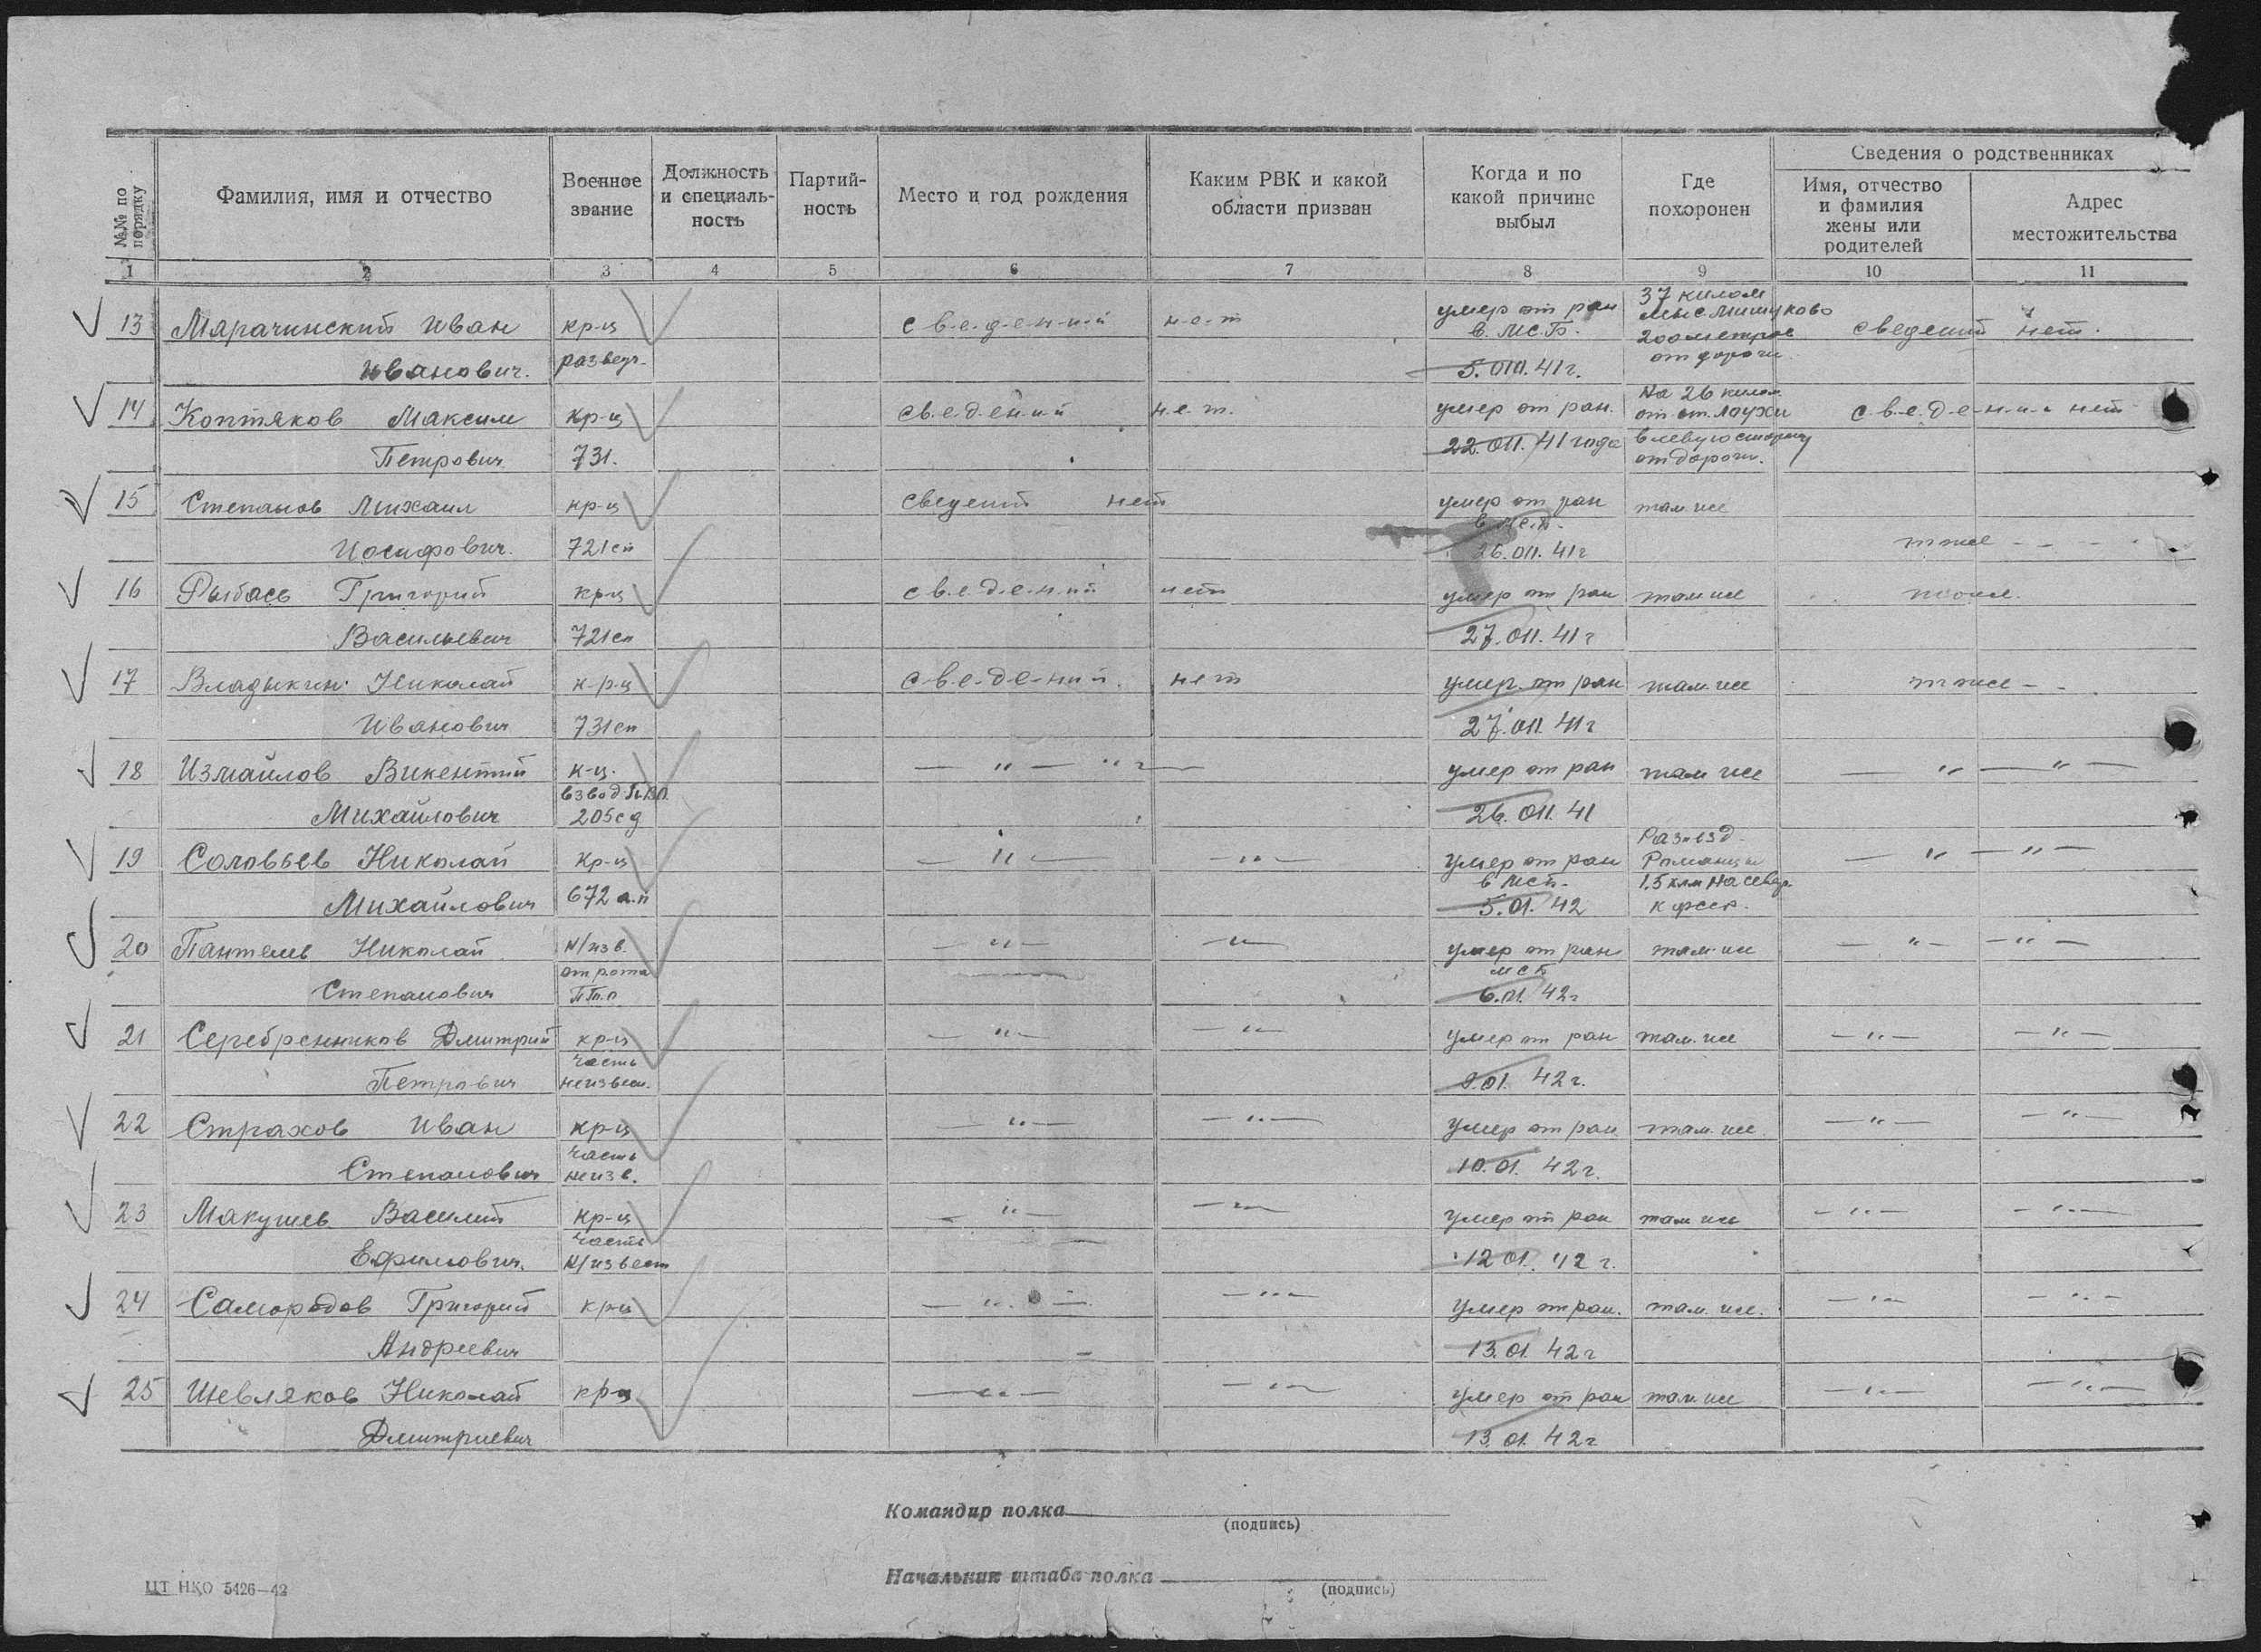 №№ по порядку
Фамилия, имя и отчество
Военное звание
Должность и специальность
Партийность
Место и год рождения
Каким РВК и какой области призван
Когда и по какой причине выбыл
Где похоронен
Сведения о родственниках
Имя, отчество и фамилия жены или родителей
Адрес местожительства
1 2 3 4 5 6 7 8 9 10 11
13 Марачинский Иван кр-ц с-в-е-д-е-н-и-й н-е-т умер от ран в МСБ. 37 килом мыс Мишуково 200 метров от дороги сведений нет.
Иванович. разведч. 41 г.
14 Коптяков Максим кр-ц с-в-е-д-е-н-и-й н-е-т. умер от ран. На 26 килом от ст. Лоухи с-в-е-д-е-н-и-й нет
Петрович 731. 22. 011. 41 года в левую сторону от дороги.
15 Степанов Михаил кр-ц сведений нет умер от ран там же
Иосифович. 721 сп 26. 011. 41 г тоже - - -
16 Рыбась Григорий кр-ц с-в-е-д-е-н-и-й нет умер от ран там же тоже.
Васильевич 721 сп 27. 011. 41 г
17 Владыкин Николай к-р-ц с-в-е-д-е-н-и-й. нет умер от ран там же тоже - -
Иванович 731 сп 27. 011. 41 г
18 Измайлов Викентий к-ц. — " — " — умер от ран там же — " — " —
взвод
Михайлович 205 сд 26. 011. 41
19 Соловьев Николай кр-ц — " — — " — умер от ран в МСБ. Разъезд 1,5 клм на север. — " — " —
Михайлович 672 а.п 5. 01. 42
20 Пантелеь Николай н/изв. — " — — " — умер от ран МСБ там же — " — — " —
Степанович 6. 01. 42 г
21 Серебренников Дмитрий кр-ц — " — — " — умер от ран там же — " — — " —
Петрович часть неизвесн. 9. 01. 42 г.
22 Страхов Иван кр-ц — " — — " — умер от ран там же — " — — " —
Степанович часть неизв. 10. 01. 42 г.
23 Макушев Василий кр-ц — " — — " — умер от ран там же — " — — " —
Ефимович. часть н/извест 12 01. 42 г.
24 Самородов Григорий кр-ц — " — — " — умер от ран. там же. — " — — " —
Андреевич 13. 01. 42 г
25 Шевляков Николай кр-ц — " — — " — умер от ран там же — " — — " —
Дмитриевич 13. 01. 42 г
Командир полка
(подпись)
Начальник штаба полка
(подпись)
ЦТ НКО 5426—42